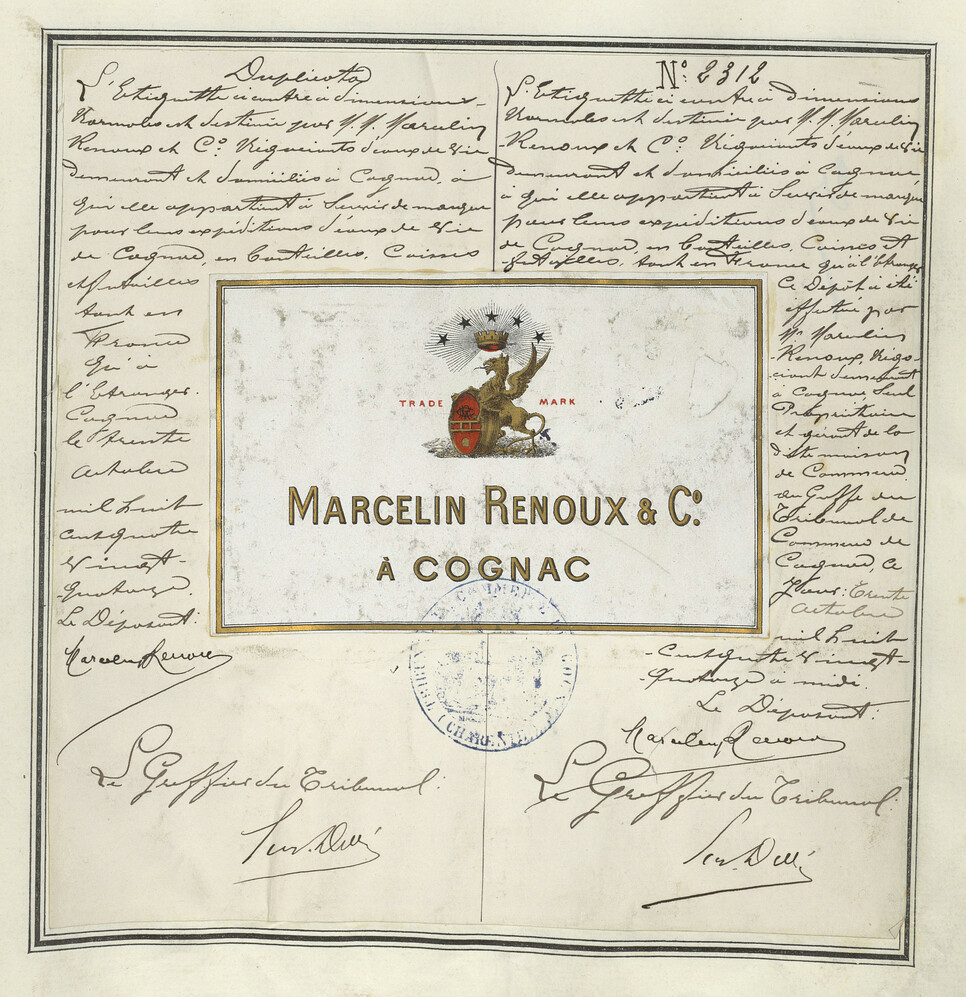 Duplicata
L'Etiquette ci contre à dimensions
Normales est destinée par M. M. Marcelin
Renoux et Co. Négociants d'eaux de vie
demeurant et domiciliés à Cognac, à
qui elle appartient à Servir de marque
pour leurs expéditions d'eaux de vie
de Cognac, en bouteilles, Caisses
et futailles
tant en
France
qu'à
l'Etranger.
Cognac
le trente
octobre
mil huit
cent quatre
vingt-
quatorze.
Le Déposant:
Marcelin Renoux
Le Greffier du Tribunal:
No. 2312
L'Etiquette ci contre à Dimensions
Normales est destinée par M. M Marcelin
Renoux et Co. Négociants d'eaux de vie
demeurant et domiciliés à Cognac
à qui elle appartient à Servir de marque
pour leurs expéditions d'eaux de vie
de Cognac, en bouteilles, Caisses et
futailles, tant en France qu'à l'étranger
Ce Dépôt a été
effectué par
Mr. Marcelin
Renoux, Négo-
ciant demeurant
à Cognac, Seul
Propriétaire
et gérant de la
dite maison
de Commerce
au Greffe du
Tribunal de
Commerce de
Cognac, ce
Jour: Trente
octobre
mil huit
-cent quatre vingt-
-quatorze à midi.
Le Déposant:
Marcelin Renoux
Le Greffier du Tribunal:
TRADE MARK
MARCELIN RENOUX & Co.
À COGNAC
TRIBUNAL DE COMMERCE DE COGNAC
(CHARENTE)